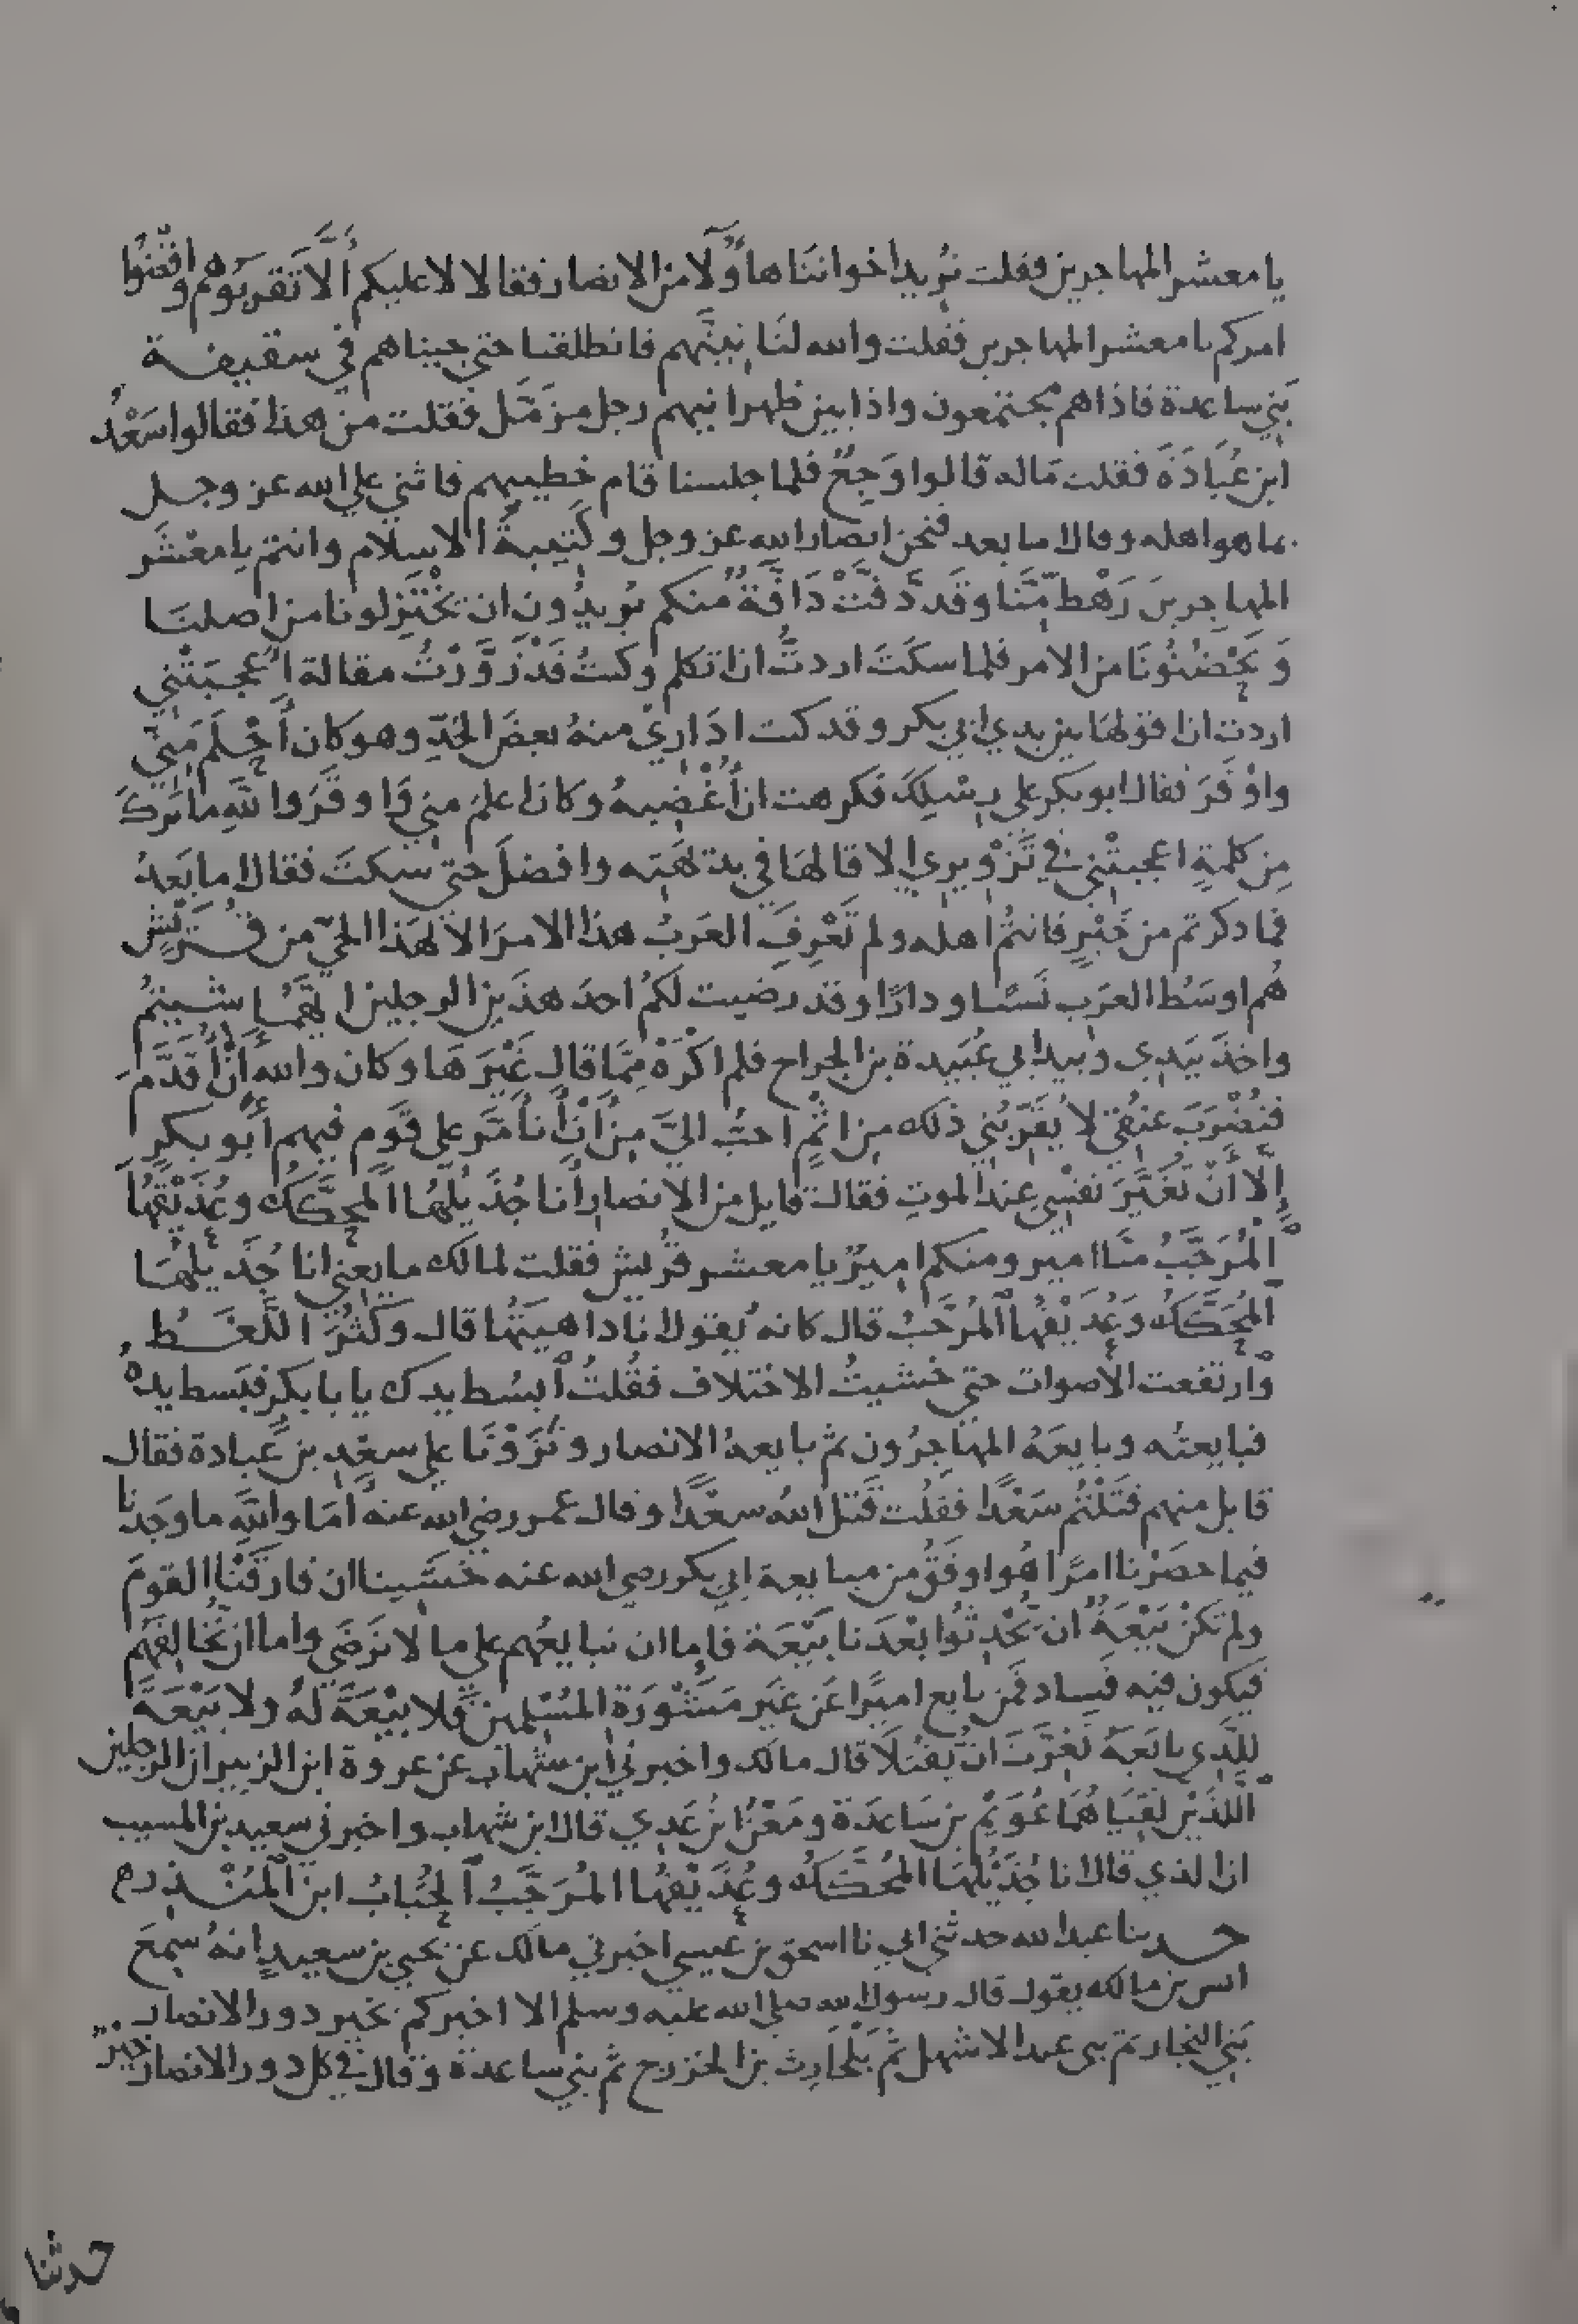 يا معشر المهاجرين فقلت نُريد اخواننا هاؤلآ من الانصار فقالا لا عليكم ألّا تقربوهم واقضوا
امركم يا معشر المهاجرين فقلت والله لنأتينّهم فانطلقنا حتى جيناهم في سقيفة
بني ساعدة فاذا هم مجتمعون واذا بين ظهرانيهم رجل مزمّل فقلت من هذا فقالوا سَعْدُ
ابن عُبَادَةَ فقلت ماله قالوا وَجِعٌ فلما جلسنا قام خطيبهم فاثنى على الله عز وجل
بما هو اهله وقال اما بعد فنحن انصار الله عز وجل وكَتيبةُ الاسلام وانتم يا معْشَر
المهاجرين رَهْط مِّنَّا وقَد دَفَّتْ دَافَّةٌ منكم يُريدُون ان يَخْتَزِلونا من اصلنا
وَيَحْضُنُونَا من الامر فلما سكَتَ اردتُّ ان اتكلم وكنتُ قَدْ زَوَّرْتُ مقالة اَعجبَتْني
اردت ان اقولها بين يدي ابي بكر وقد كنت اُدَاري منهُ بعضَ الحَدِّ وهو كان أَحْلَمَ مِنّي
واوْقَرَ فقال ابو بكر على رِسْلِكَ فكرهت ان أُغْضِبهُ وكان اعلمَ مني وَاوقَرَ واللهِ ما تركَ
مِن كلمةٍ اعجبتْني في تَزْويري الا قالهَا في بدَهته وافضلَ حتى سكتَ فقال اما بَعدُ
فما ذكرتم من خَيْرٍ فانتُم اهله ولم تَعْرِفَ العَربُ هذا الامرَ الا لهَذا الحيّ من قُرَيْشٍ
هُم اوسَطُ العرَب نَسَبًا ودارًا وقد رضيت لكمُ احدَ هذَين الرجلين ايّهَمُا شيئتُم
واخذَ بيَدِي وبيد ابي عُبَيدة بن الجراح فلم اكْرَهْ مِمَّا قال غَيْرَهَا وكان والله أَنْ أُقَدَّمَ
فتُضْرَبَ عنُقي لا يُقَرّبُني ذلك من اثْمٍ احبُّ اليَّ مِنْ أَنْ أتأمَّر على قَوْم فيهم أبو بكرٍ
إلا أَنْ تَغَيَّرَ نفسِي عند الموتِ فقال قايل من الانصار أنا جُذَيْلُهَا المحَكَّكُ وعُذَيْقُهَا
المُرَجَّبُ منّا امير ومنكم اميرٌ يا معشر قُريش فقلت لمالك ما يعني انا جُذَيلهَا
المُحَكَّكُ وَعُذَيْقُهَا المُرَجَّبُ قال كانه يقول انا داهيَتُها قال وكَثُرَ اللَّغَـط
وارتفعت الأصوات حتى خشيتُ الاختلاف فقُلتُ ابسُط يدك يا با بكر فبَسط يدهُ
فبايعته وبايعَهُ المهَاجرُون ثم بايعهُ الانصار ونَزَوْنَا على سعْدِ بن عُبادة فقال
قايل منهم قتَلْتُم سَعْدًا فقلت قَتلَ اللهُ سعْدًا وقال عمر رضي الله عنه أمَا واللهِ ما وجَدنا
فيما حضَرْنا امرًا هُو اوفَقُ من مبايعة ابي بكر رضي الله عنه خَشينا ان فارَقْنا القومَ
ولم تكنْ بَيْعَةٌ ان يُحْدِثُوا بعْدَنا بَيْعَة فإما ان نبايعهُم على ما لا نَرضَى واما ان نُخالِفَهُم
فيَكون فيه فَساد فمَن بايع اميرًا عَن غَير مَشْوَرَةِ المُسْلِمينَ فلا بيْعَةَ لَهُ ولا بَيْعَةَ
للَّذِي بايَعهُ تَغِرَّتَ انْ يُقْتَلَا قال مالك واخبرني ابن شهاب عن عروة ابن الزبير ان الرجلين
اللَّذَيْن لقيَاهُمَا عُوَيْمُ بن سَاعدَة ومَعْنُ بنُ عَدِي قال ابن شهاب واخبرني سعيد بن المسيب
ان الذي قال انا جُذَيْلُهَا المُحَكَّكُ وعُذَيْقُهَا المُرَجَّبُ الحُبَابُ ابن المُنْذِر
حدثنا عبد الله حدثني ابي نا اسحق بن عيسى اخبرني مالك عن يحيى بن سعيدٍ انهُ سمِعَ
انس بن مالك يقول قال رسول الله صلى الله عليه وسلم الا اخبركم بخير دور الانصار
بَني النجار ثم بني عبد الاشهل ثم بَلْحَارِث بن الخزرج ثم بني ساعدة وقال في كل دور الانصار خيرٌ
حدثنا